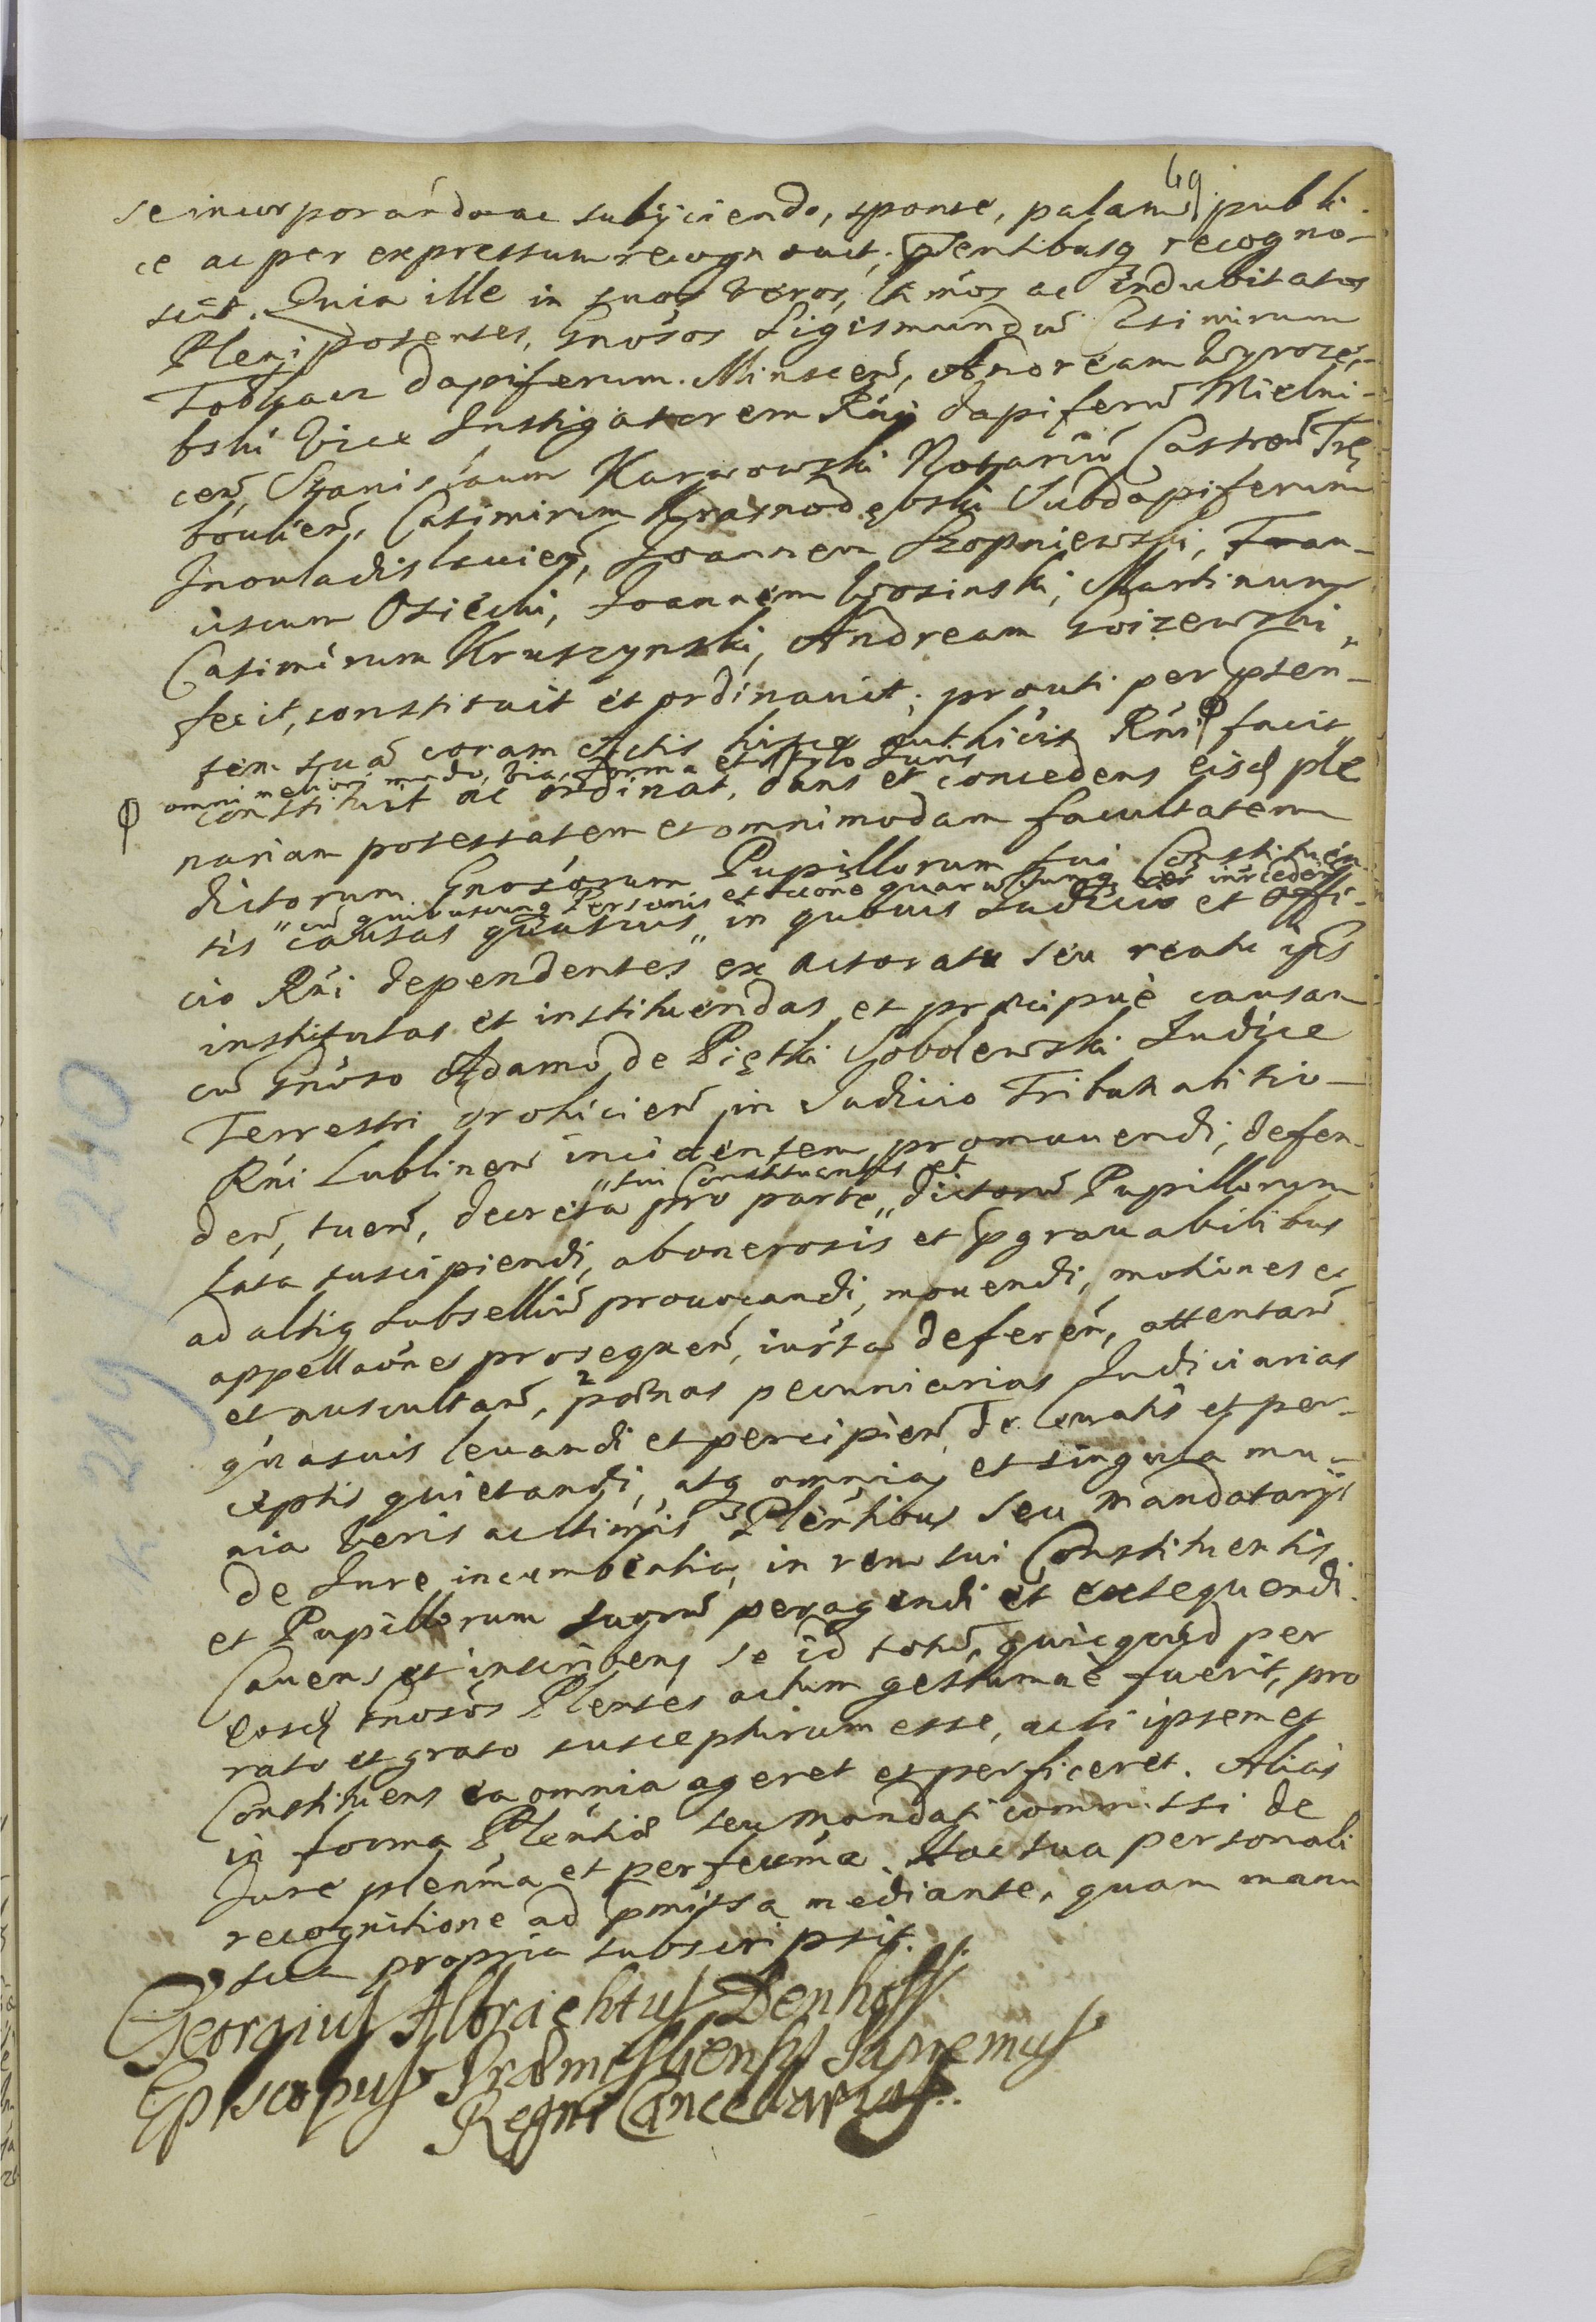 49
se incorporando ac subijciendo, sponse, palam publi-
ce ac per expressum recognovit, pntibusq recogno-
scit. Quia ille in suos veros, ltimos ac indubitatos
Plenipotentes, Gnosos Sigismundũ Casimirum
Tobijasz Dapiferum Minscen̄, Andream Wyroze-
bski Vice Instigatorem Rni Dapiferũ Mielni-
cen̄, Stanislaum Karwowski Notariũ Castren̄ Trę
boulien̄, Casimirum Krasnodębski Subdapiferum
Inouladislauien̄, Joannem Szopniewski, Fran-
ciscum Osiecki, Joannem Wosinski, Martinum
Casimirum Kruszynski, Andream Goizewski
fecit, constituit et ordinavit; prouti per psen-
tem suã coram Actis hisce authicis Rni ϕ facit
ϕ omni meliori modo, via, forma et stylo Juris
constituit ac ordinat, dans et concedens eisd ple
nariam potestatem et omnimodam facultatem
dictorum Gnosorum Pupillorum sui Constituen
„ cũ quibusvis Personis et rãone quarũcunq rer intceden
tis causas quasvis „ in quibusvis Judicio et offi-
cio Rni dependentes ex actoratu seu reatu ips
institutas et instituendas et præcipuè causam
cũ Gnõso Adamo de Piętki Sobolewski Judice
Terrestri Drohicien̄ in Judicio Tribunalitio
Rni Lublinen̄ incidentem promovendi, defen-
„ sui Constituentis et
den̄, tuen̄, decreta pro parte „ dictorũ Pupillorum
lata suscipiendi, ab onerosis et pgravabilibus
ad altiq subselliũ provocandi, movendi, motiones et
appellaões prosequen̄, iurta deferen̄, attentan̄
et auscultan̄, pœnas pecuniarias Judiciarias
quasvis levandi et percipien̄, De levatis et per-
ceptis quietandi, atq omnia et singula mu-
nia veris ac ltimis Plentibus seu Mandatarijs
de Jure incumbentia, in rem sui Constituentis
et Pupillorum suorũ peragendi et exequendi.
Cavens et inscribens se id totũ, quicquid per
eosd Gnosos Plentes actum gestumve fuerit, pro
rato et grato suscepturum esse, ac si ipsemet
Constituens ea omnia ageret et perficeret. Alias
in forma Plentiæ seu Mandati commissi de
Jure plenma et perfectma. Hac sua personali
recognitione ad pmissa mediante, quam manu
sua propria subscripsit.
Georgius Albrachtus Denhoff
Episcopus Præmisliensis Supremus
Regni Cancellarius.
k. 219 / 240